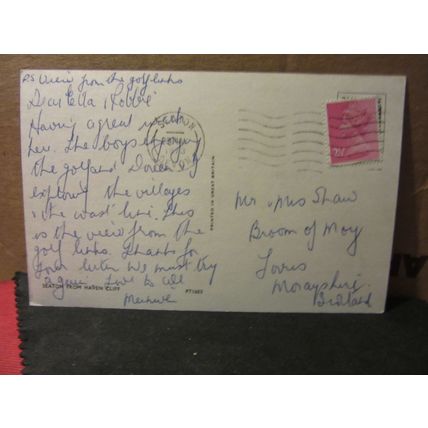 PS View from the golf links
Dear Ella & Robbie
Having a great week
here. The boys enjoying
the golf and Doreen & I
exploring the villages
& the coast line. This
is the view from the
golf links. Thanks for
your letter. We must try
again. Love to all
SEATON FROM HAVEN CLIFF
PT1682
PRINTED IN GREAT BRITAIN
SEATON
2½P
Mr & Mrs Shaw
Broom of Moy
Forres
Morayshire
Scotland